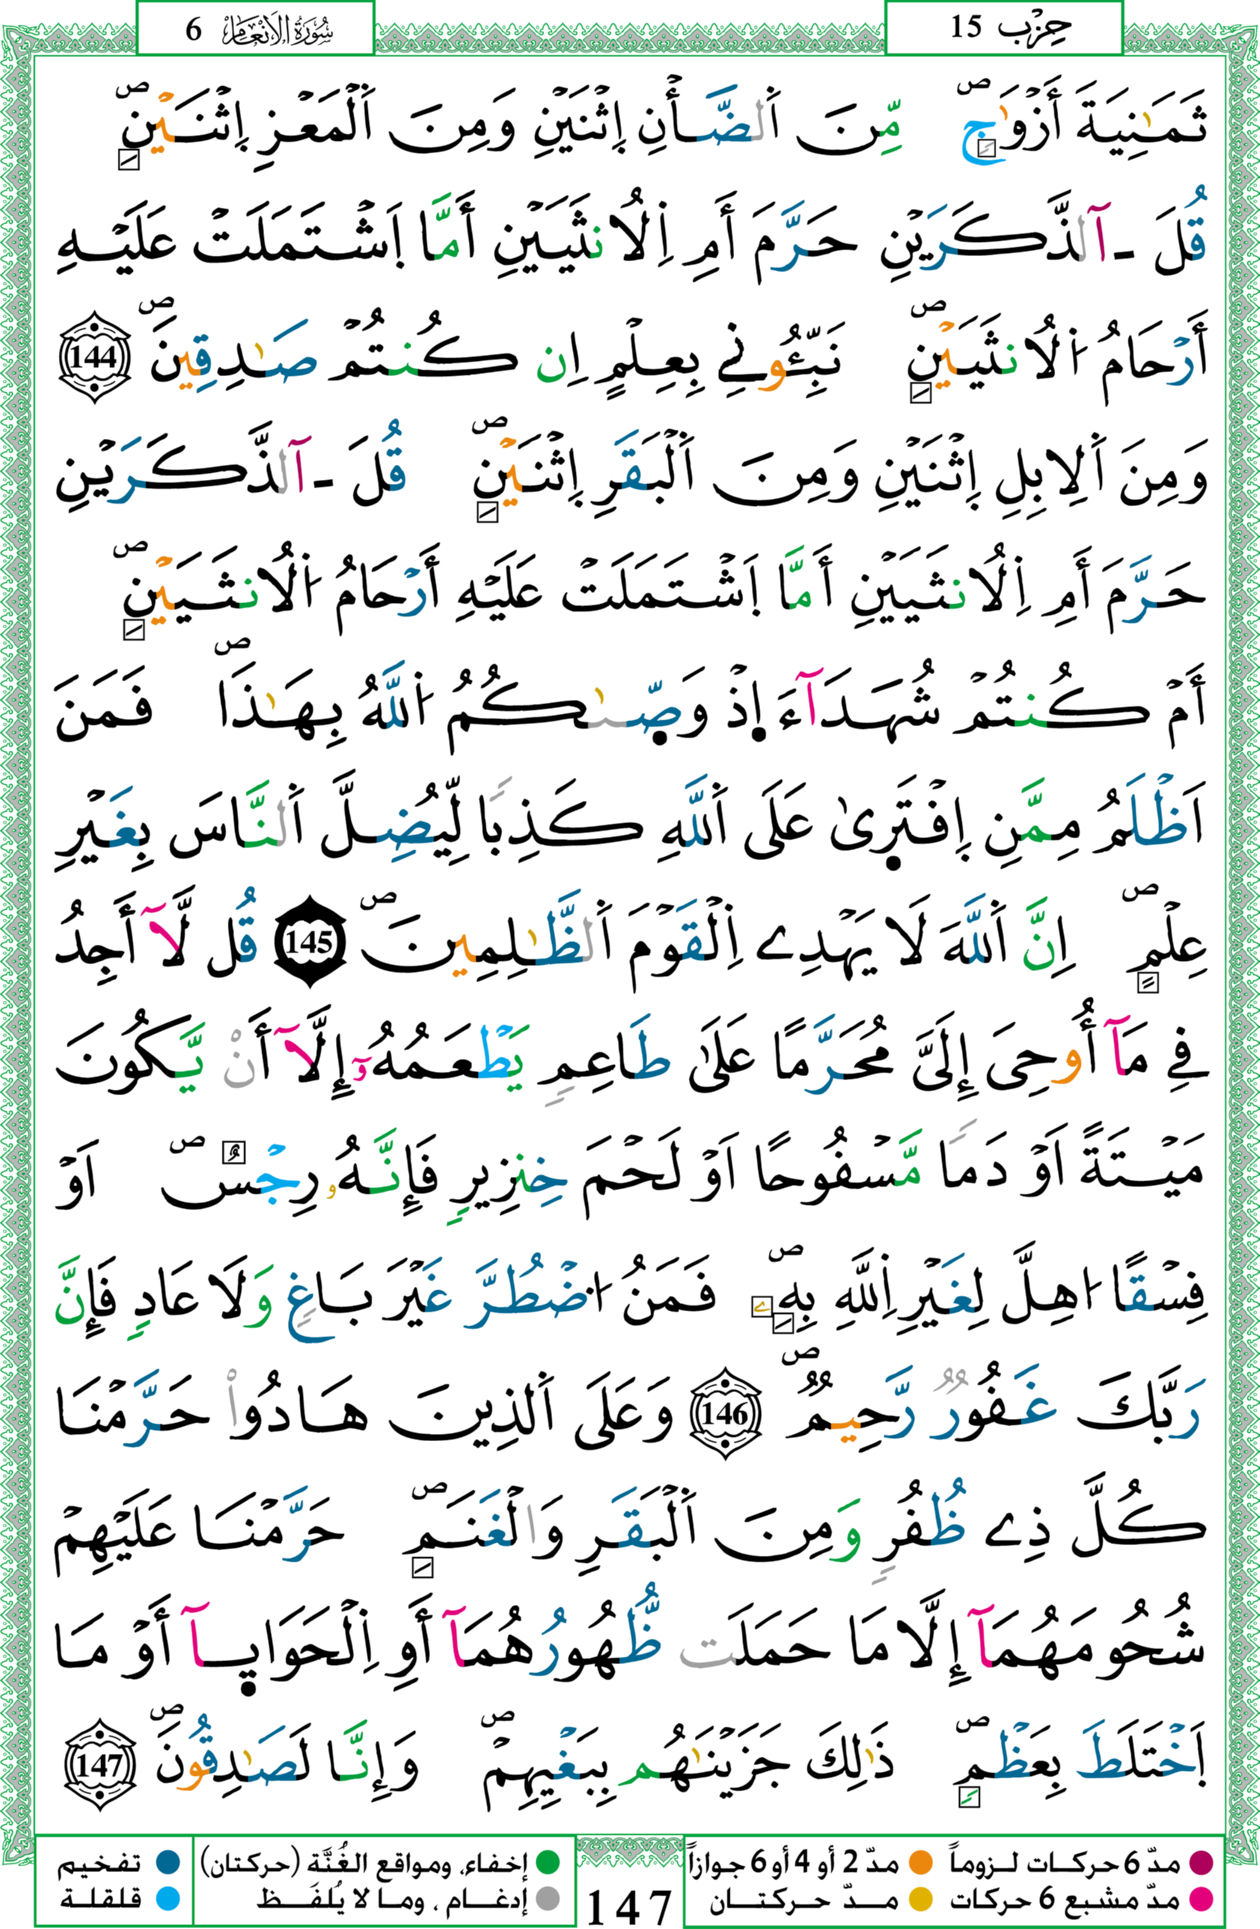 سُورَةُ الْأَنْعَامِ 6
حِزْب 15
ثَمَٰنِيَةَ أَزْوَٰجٖۖ مِّنَ اَ۬لضَّأْنِ اِ۪ثْنَيْنِ وَمِنَ اَ۬لْمَعْزِ اِ۪ثْنَيْنِۖ
قُلَ ـ آلذَّكَرَيْنِ حَرَّمَ أَمِ اِ۬لُانثَيَيْنِ أَمَّا اَ۪شْتَمَلَتْ عَلَيْهِ
أَرْحَامُ اُ۬لُانثَيَيْنِۖ نَبِّـُٔونِے بِعِلْمٍ اِن كُنتُمْ صَٰدِقِينَۖ 144
وَمِنَ اَ۬لِابِلِ اِ۪ثْنَيْنِ وَمِنَ اَ۬لْبَقَرِ اِ۪ثْنَيْنِۖ قُلَ ـ آلذَّكَرَيْنِ
حَرَّمَ أَمِ اِ۬لُانثَيَيْنِ أَمَّا اَ۪شْتَمَلَتْ عَلَيْهِ أَرْحَامُ اُ۬لُانثَيَيْنِۖ
أَمْ كُنتُمْ شُهَدَآءَ اِذْ وَصّ۪ىٰكُمُ اُ۬للَّهُ بِهَٰذَاۖ فَمَنَ
اَظْلَمُ مِمَّنِ اِ۪فْتَر۪يٰ عَلَى اَ۬للَّهِ كَذِباٗ لِّيُضِلَّ اَ۬لنَّاسَ بِغَيْرِ
عِلْمٍۖ اِنَّ اَ۬للَّهَ لَا يَهْدِے اِ۬لْقَوْمَ اَ۬لظَّٰلِمِينَۖ 145 قُل لَّآ أَجِدُ
فِے مَآ أُوحِيَ إِلَيَّ مُحَرَّمًا عَلَىٰ طَاعِمٖ يَطْعَمُهُۥٓ إِلَّآ أَنْ يَّكُونَ
مَيْتَةً اَوْ دَماٗ مَّسْفُوحًا اَوْ لَحْمَ خِنزِيرٖ فَإِنَّهُۥ رِجْسٌۖ اَوْ
فِسْقًا ا۟هِلَّ لِغَيْرِ اِ۬للَّهِ بِهِۦۖ فَمَنُ اُ۟ضْطُرَّ غَيْرَ بَاغٖ وَلَا عَادٖ فَإِنَّ
رَبَّكَ غَفُورٞ رَّحِيمٞۖ 146 وَعَلَى اَ۬لذِينَ هَادُواْ حَرَّمْنَا
كُلَّ ذِے ظُفُرٖ وَمِنَ اَ۬لْبَقَرِ وَالْغَنَمِۖ حَرَّمْنَا عَلَيْهِمْ
شُحُومَهُمَآ إِلَّا مَا حَمَلَت ظُّهُورُهُمَآ أَوِ اِ۬لْحَوَاي۪آ أَوْ مَا
اَ۪خْتَلَطَ بِعَظْمٖۖ ذَٰلِكَ جَزَيْنَٰهُم بِبَغْيِهِمْۖ وَإِنَّا لَصَٰدِقُونَۖ 147
مدّ 6 حركات لـزوماً
مدّ 2 أو 4 أو 6 جوازاً
إخفاء، ومواقع الغُنَّة (حركتان)
تفخيم
مدّ مشبع 6 حركات
مـد حركتـان
إدغـام ، ومـا لا يُلفَـظ
قلقلـة
147